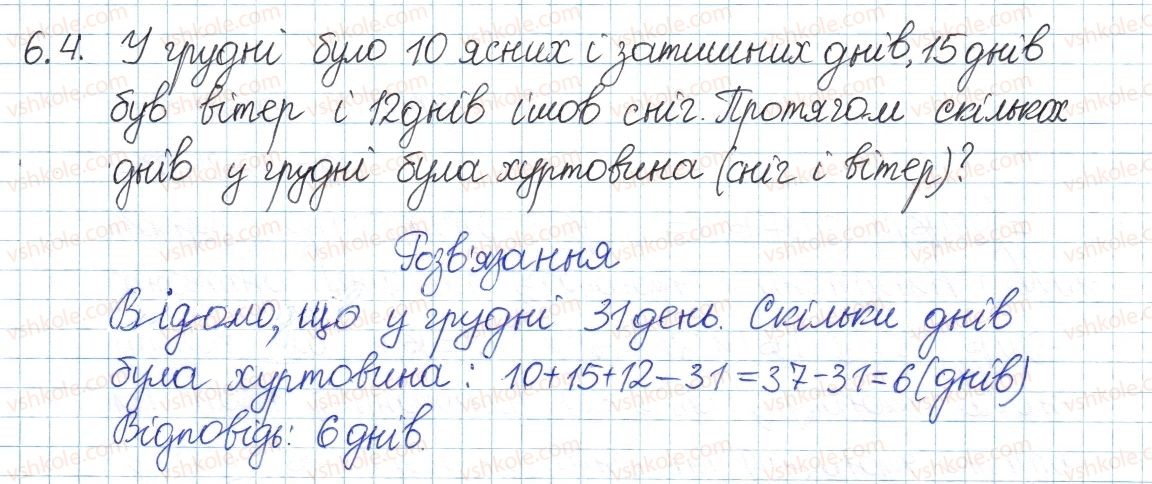 6.4. У грудні було 10 ясних і затишних днів, 15 днів
був вітер і 12 днів ішов сніг. Протягом скількох
днів у грудні була хуртовина (сніг і вітер)?
Розв'язання
Відомо, що у грудні 31 день. Скільки днів
була хуртовина: 10+15+12-31=37-31=6(днів)
Відповідь: 6 днів.